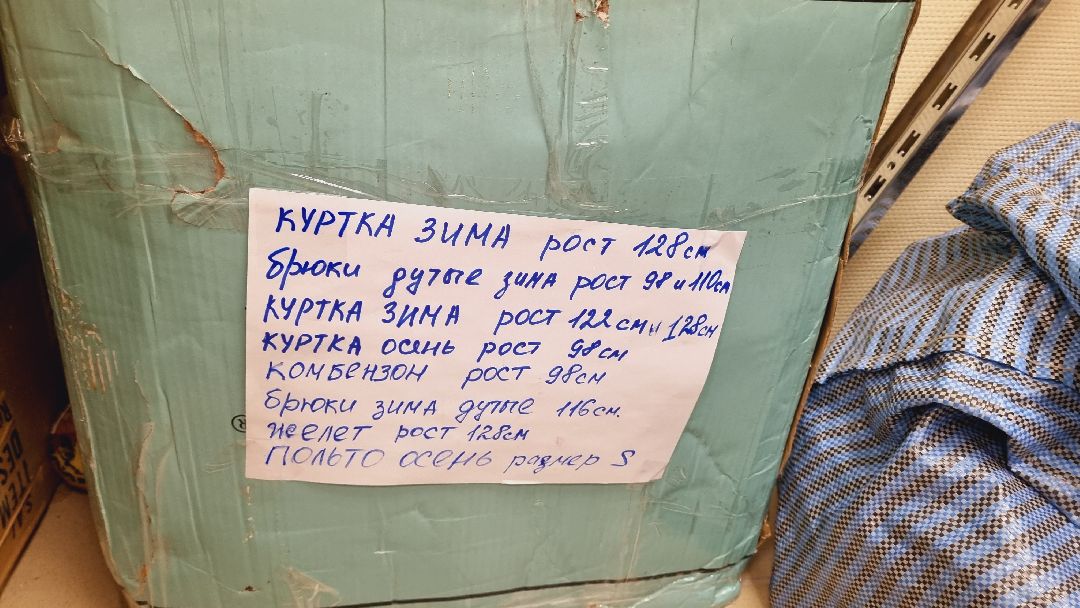 КУРТКА ЗИМА рост 128см
брюки дутые зима рост 98 и 110см
КУРТКА ЗИМА рост 122см и 128см
КУРТКА осень рост 98см
КОМБЕНЗОН рост 98см
брюки зима дутые 116см.
желет рост 128см
ПОЛЬТО ОСЕНЬ размер S
®